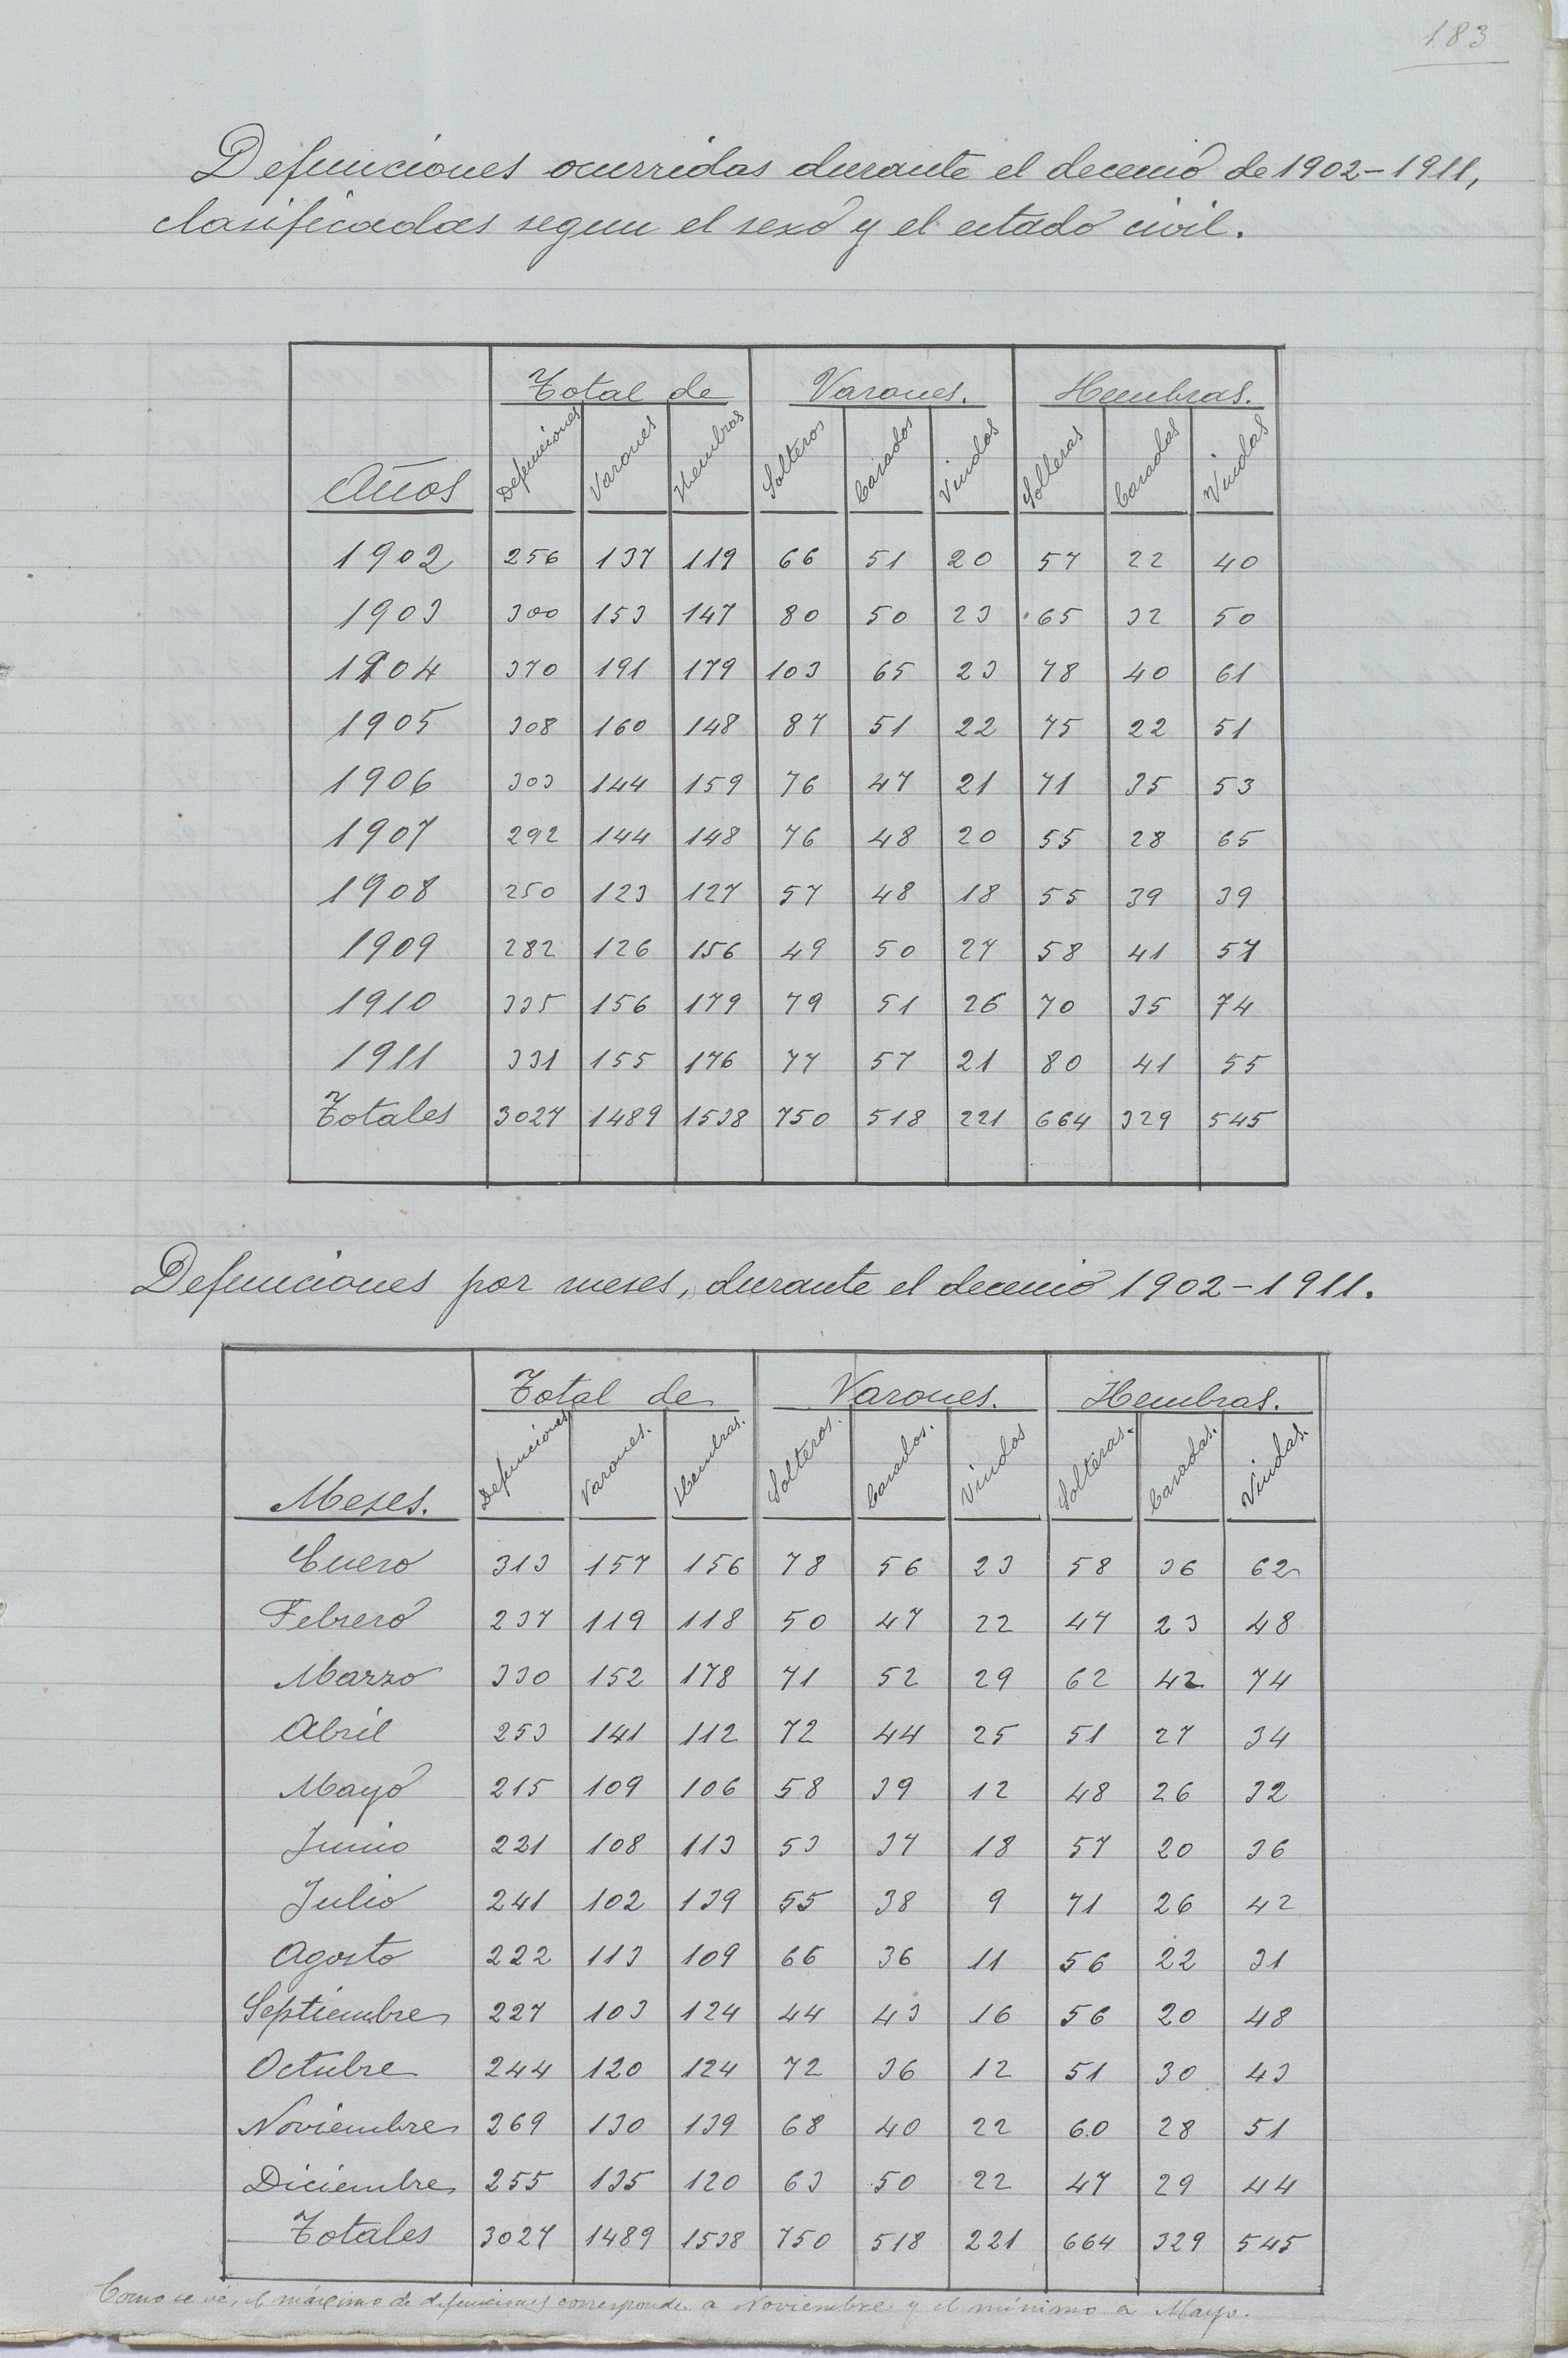 183
Defunciones ocurridas durante el decenio de 1902-1911,
clasificadas segun el sexo y el estado civil.
Años Total de Varones. Hembras.
Defunciones Varones Hembras Solteros Casados Viudos Solteras Casadas Viudas
1902 256 137 119 66 51 20 57 22 40
1903 300 153 147 80 50 23 65 32 50
1904 370 191 179 103 65 23 78 40 61
1905 308 160 148 87 51 22 75 22 51
1906 303 144 159 76 47 21 71 35 53
1907 292 144 148 76 48 20 55 28 65
1908 250 123 127 57 48 18 55 39 39
1909 282 126 156 49 50 27 58 41 57
1910 335 156 179 79 51 26 70 35 74
1911 331 155 176 77 57 21 80 41 55
Totales 3027 1489 1538 750 518 221 664 329 545
Defunciones por meses, durante el decenio 1902-1911.
Meses. Total de Varones. Hembras.
Defunciones Varones. Hembras. Solteros. Casados. Viudos Solteras. Casadas. Viudas.
Enero 313 157 156 78 56 23 58 36 62
Febrero 237 119 118 50 47 22 47 23 48
Marzo 330 152 178 71 52 29 62 42 74
Abril 253 141 112 72 44 25 51 27 34
Mayo 215 109 106 58 39 12 48 26 32
Junio 221 108 113 53 37 18 57 20 36
Julio 241 102 139 55 38 9 71 26 42
Agosto 222 113 109 66 36 11 56 22 31
Septiembre 227 103 124 44 43 16 56 20 48
Octubre 244 120 124 72 36 12 51 30 43
Noviembre 269 130 139 68 40 22 60 28 51
Diciembre 255 135 120 63 50 22 47 29 44
Totales 3027 1489 1538 750 518 221 664 329 545
Como se vé, el máximo de defunciones corresponde a Noviembre y el mínimo a Mayo.